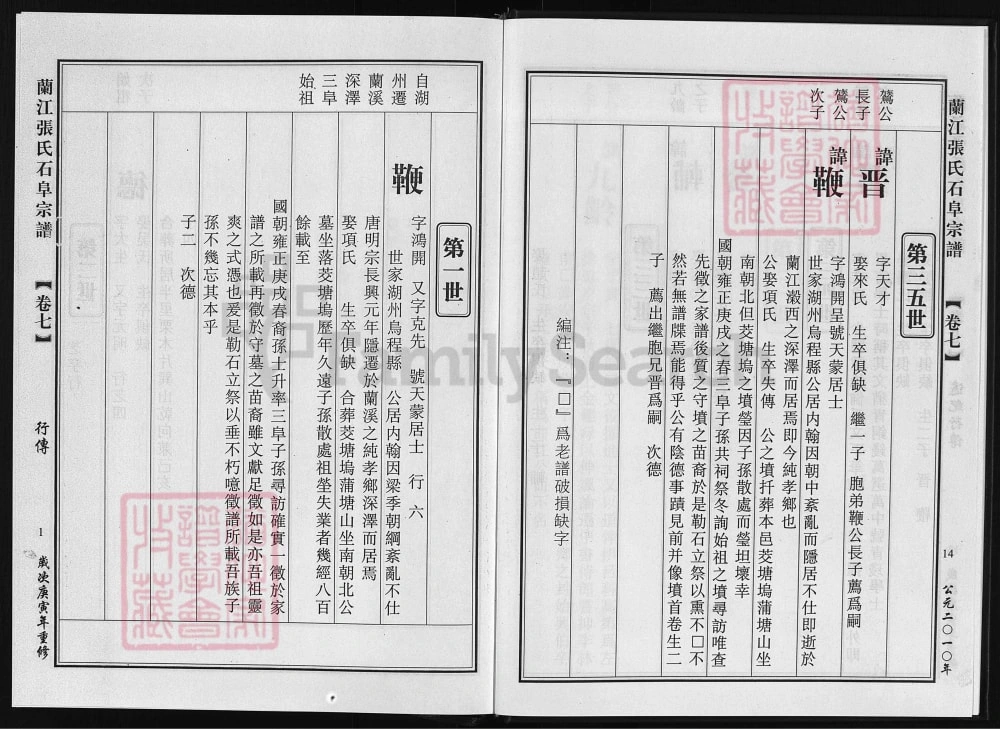 蘭江張氏石阜宗譜
【卷七】
14
公元二〇一〇年
第三五世
鷟公
長子
諱晋
字天才
娶來氏 生卒俱缺 繼一子 胞弟鞭公長子薦爲嗣
鷟公
次子
諱鞭
字鴻開呈號天蒙居士
世家湖州烏程縣公居内翰因朝中紊亂而隱居不仕即逝於
蘭江瀫西之深澤而居焉即今純孝鄉也
公娶項氏 生卒失傳 公之墳扦葬本邑茭塘塢蒲塘山坐
南朝北但茭塘塢之墳塋因子孫散處而塋坦壞幸
國朝雍正庚戌之春三阜子孫共祠祭冬詢始祖之墳尋訪唯查
先徵之家譜後質之守墳之苗裔於是勒石立祭以熏不□不
然若無譜牒焉能得乎公有陰德事蹟見前并像墳首卷生二
子 薦出繼胞兄晋爲嗣 次德
編注：『□』爲老譜破損缺字
自湖
州遷
蘭溪
深澤
三阜
始祖
第一世
鞭
字鴻開 又字克先 號天蒙居士 行 六
世家湖州烏程縣 公居内翰因梁季朝綱紊亂不仕
唐明宗長興元年隱遷於蘭溪之純孝鄉深澤而居焉
娶項氏 生卒俱缺 合葬茭塘塢蒲塘山坐南朝北公
墓坐落茭塘塢歷年久遠子孫散處祖塋失業者幾經八百
餘載至
國朝雍正庚戌春裔孫士升率三阜子孫尋訪確實一徵於家
譜之所載再徵於守墓之苗裔雖文獻足徵如是亦吾祖靈
爽之式憑也爰是勒石立祭以垂不朽噫徵譜所載吾族子
孫不幾忘其本乎
子二 次德
蘭江張氏石阜宗譜
【卷七】
行傳
1
歲次庚寅年重修
FamilySearch